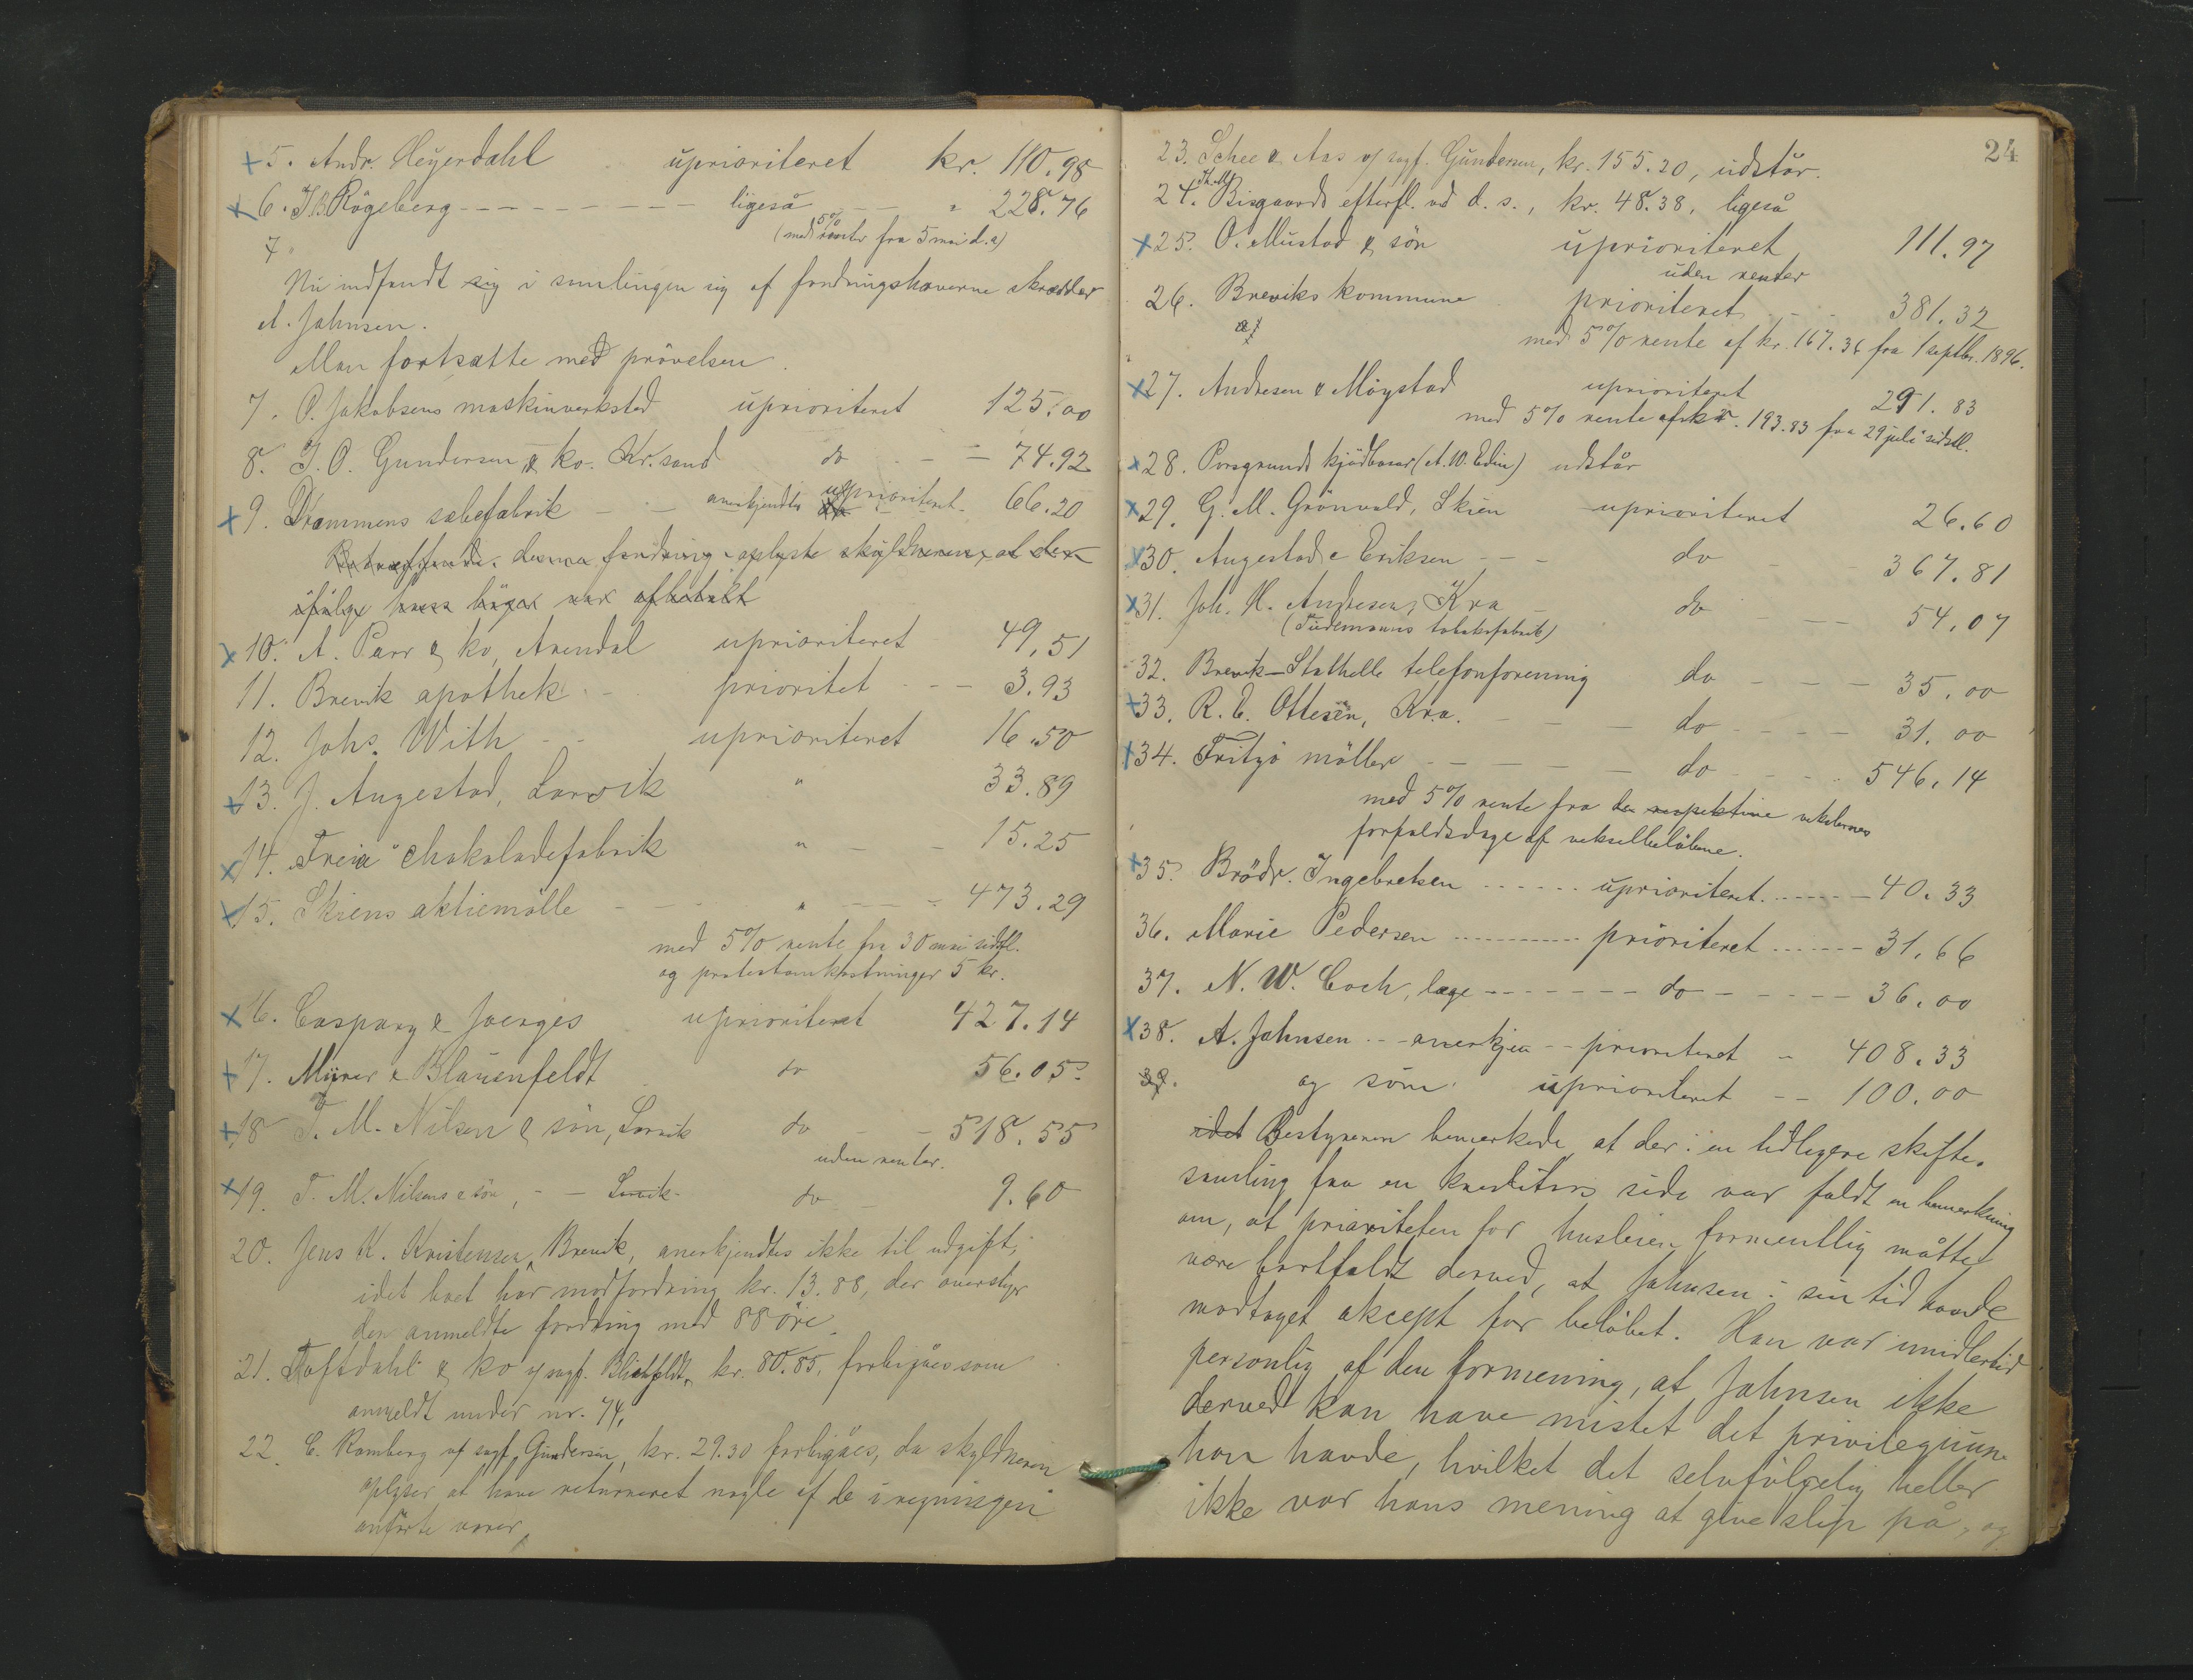 5. Andr. Heyerdahl uprioriteret kr. 110.98
6. J.B. Rögeberg ligeså " 228.76
(med 5% renter fra 5 mai d.a)
7
Nu indfandt sig i samlingen sig af fordringshaverne skrædder
A. Johnsen.
Man fortsatte med prövelsen.
7. O. Jakobsens maskinverksted uprioriteret 125.00
8. J. O. Gundersen & ko. Kr.sand do 74.92
9. Drammens sæbefabrik anerkjendtes uprioriteret 66.20
Betræffende denne fordring oplyste skyldneren, at den
ifölge hans böger var afbetalt
10. A. Parr & ko, Arendal uprioriteret 49,51
11. Brevik apothek prioritet 3.93
12. Johs. With uprioriteret 16.50
13. J. Angestad, Larvik " 33.89
14. "Freia" chokoladefabrik " 15.25
15. Skiens aktiemölle " 473.29
med 5% rente fra 30 mai sidstl.
og protestomkostninger 5 kr.
16. Caspary & Joerges uprioriteret 427.14
17. Myrer & Blauenfeldt do 56.05
18 T. M. Nilsen & sön, Larvik do 518.55
uden renter.
19. T. M. Nilsens & sön, Larvik do 9.60
20. Jens K. Kristensen, Brevik, anerkjendtes ikke til udgift,
idet boet har modfordring kr. 13.88, der overstiger
den anmeldte fordring med 88 öre.
21. Toftdahl & ko v/ sagf. Blichfeldt, kr. 80.85, forbigåes som
anmeldt under nr. 74.
22. C. Ramberg v/ sagf. Gundersen, kr. 29.30 forbigåes, da skyldneren
oplyser at have returneret nogle af de i regningen
anförte varer.
24
23. Schee & Aas v/ sagf. Gundersen, kr. 155.20, udstår.
24. Th. M. Bisgaards efterfl. ved d. s., kr. 48.38, ligeså
25. O. Mustad & sön uprioriteret 111.97
uden renter
26. Breviks kommune prioriteret 381.32
med 5% rente af kr. 167.36 fra 1 septbr. 1896.
27. Andresen & Möystad uprioriteret 291.83
med 5% rente af kr. 193.83 fra 29 juli sidstl.
28. Porsgrunds kjödbasar (A. W. Edin) udstår
29. G. M. Grönvald, Skien uprioriteret 26.60
30. Angestad & Eriksen do 367.81
31. Joh. H. Andresen, Kra do 54.07
(Tiedemanns tobaksfabrik)
32. Brevik-Stathelle telefonforening do 35.00
33. R. C. Ottesen, Kra. do 31.00
34. Fritzö möller do 546.14
med 5% rente fra de respektive vekslernes
forfaldsdage af vekselbelöbene.
35. Brödr. Ingebretsen uprioriteret 40.33
36. Marie Pedersen prioriteret 31.66
37. N. W. Coch, læge do 36.00
38. A. Johnsen anerkjen prioriteret 408.33
39. og som uprioriteret 100.00
idet Bestyreren bemerkede at der i en tidligere skifte-
samling fra en kreditors side var faldt en bemerkning
om, at prioriteten for husleien formentlig måtte
være bortfaldt derved, at Johnsen i sin tid havde
modtaget akcept for belöbet. Han var imidlertid
personlig af den formening, at Johnsen ikke
derved kan have mistet det privilegium
han havde, hvilket det selvfölgelig heller
ikke var hans mening at give slip på, og